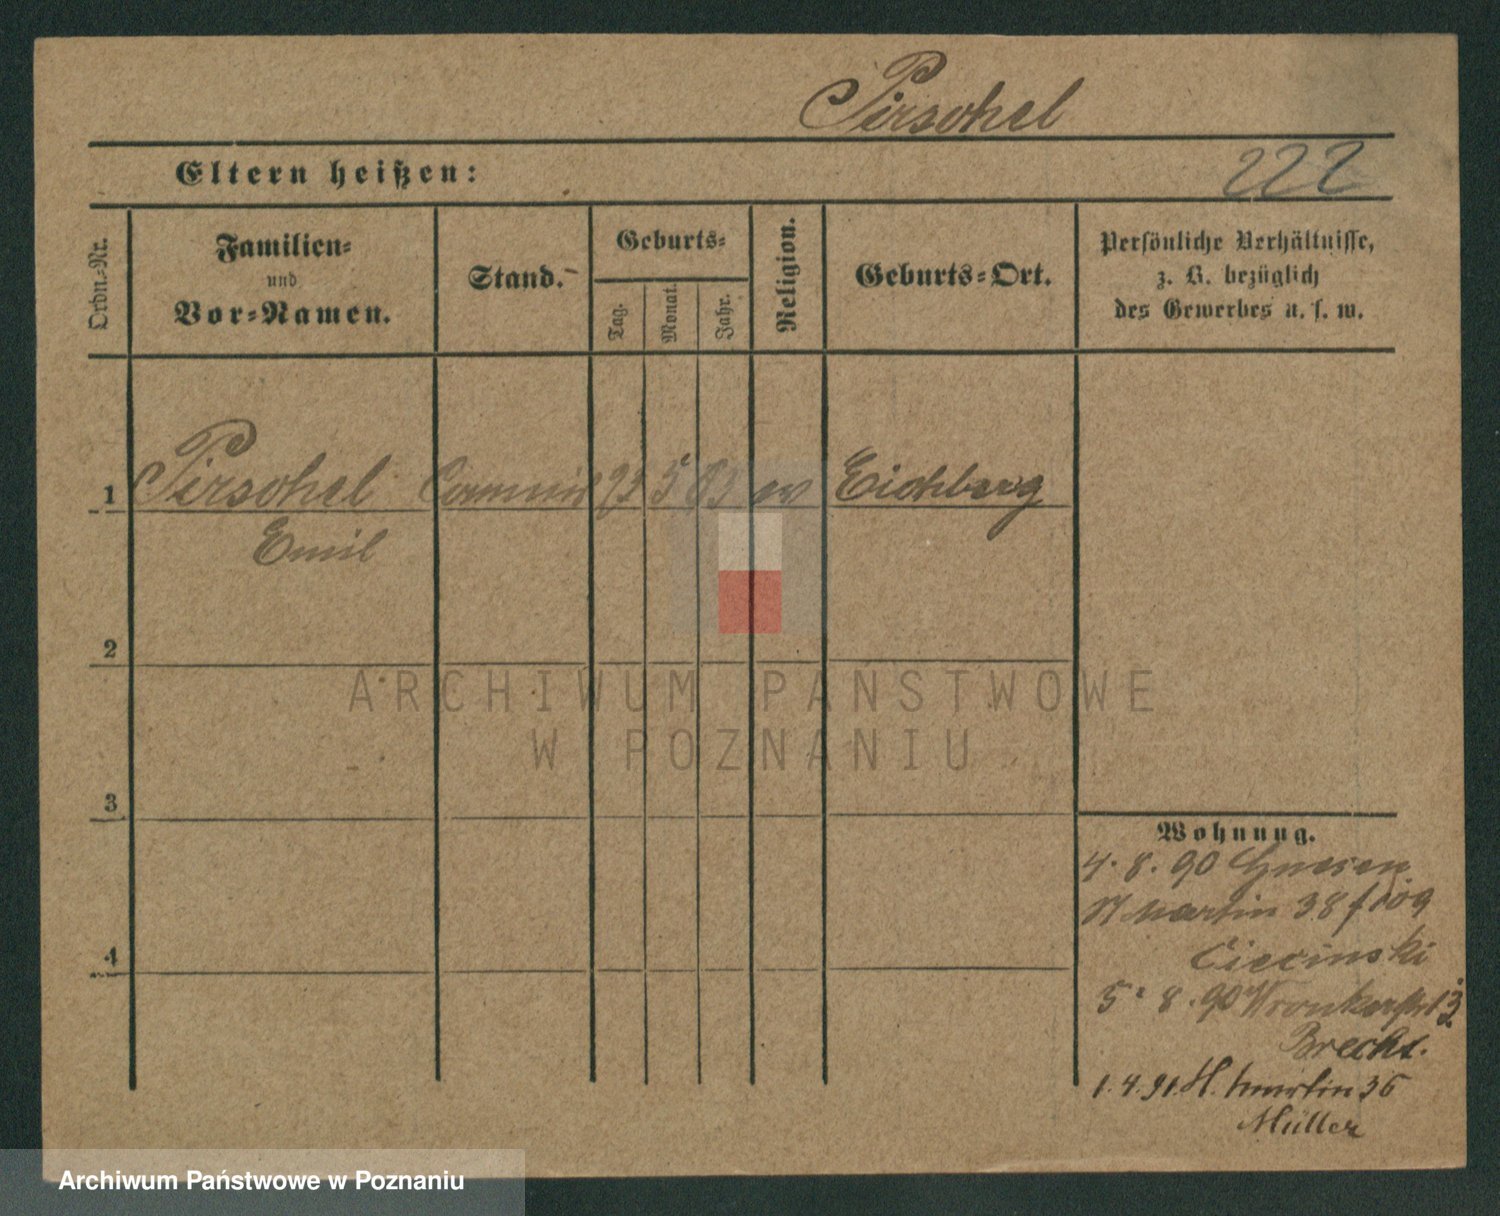 Pirschel
Eltern heißen:
222
Ordn.-Nr.
Familien-
und
Vor-Namen.
Stand.
Geburts-
Tag.
Monat.
Jahr.
Religion.
Geburts-Ort.
Persönliche Verhältnisse,
z. B. bezüglich
des Gewerbes u. s. w.
1
Pirschel
Commis
5
ev
Eichberg
Emil
2
3
4
Wohnung.
4. 8. 90 Gnesen
St Martin 38
Ciecinski
5. 8. 90 Wronkerstr
Brecht.
1. 4. 91. St. Martin 36
Müller
ARCHIWUM PAŃSTWOWE
W POZNANIU
Archiwum Państwowe w Poznaniu